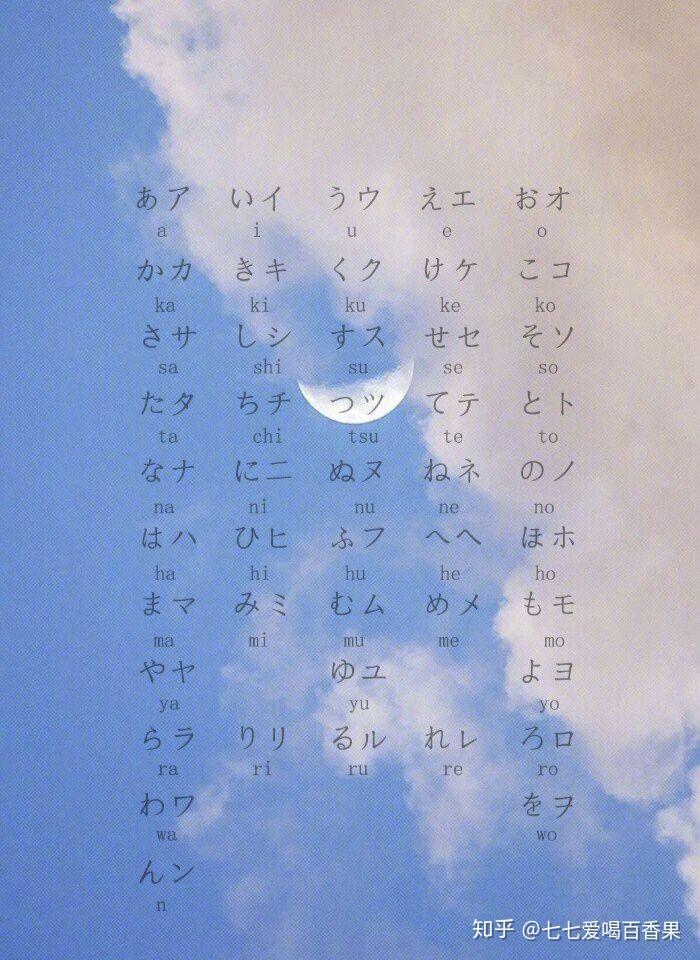 あア いイ うウ えエ おオ
a i u e o
かカ きキ くク けケ こコ
ka ki ku ke ko
さサ しシ すス せセ そソ
sa shi su se so
たタ ちチ つツ てテ とト
ta chi tsu te to
なナ にニ ぬヌ ねネ のノ
na ni nu ne no
はハ ひヒ ふフ へヘ ほホ
ha hi hu he ho
まマ みミ むム めメ もモ
ma mi mu me mo
やヤ ゆユ よヨ
ya yu yo
らラ りリ るル れレ ろロ
ra ri ru re ro
わワ をヲ
wa wo
んン
n
知乎 @七七爱喝百香果